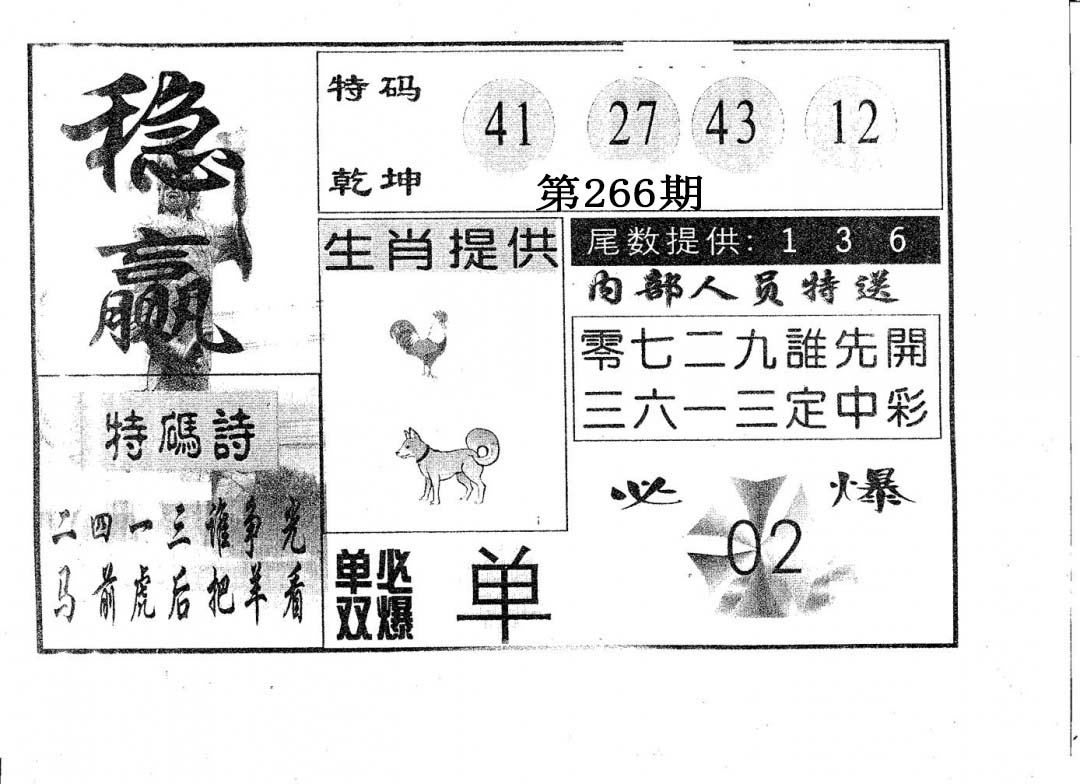 稳赢
特码 41 27 43 12
乾坤
第266期
生肖提供
尾数提供: 1 3 6
内部人员特送
零七二九誰先開
三六一三定中彩
特碼詩
二四一三谁争光
马前虎后把羊看
必爆
02
单双必爆
单